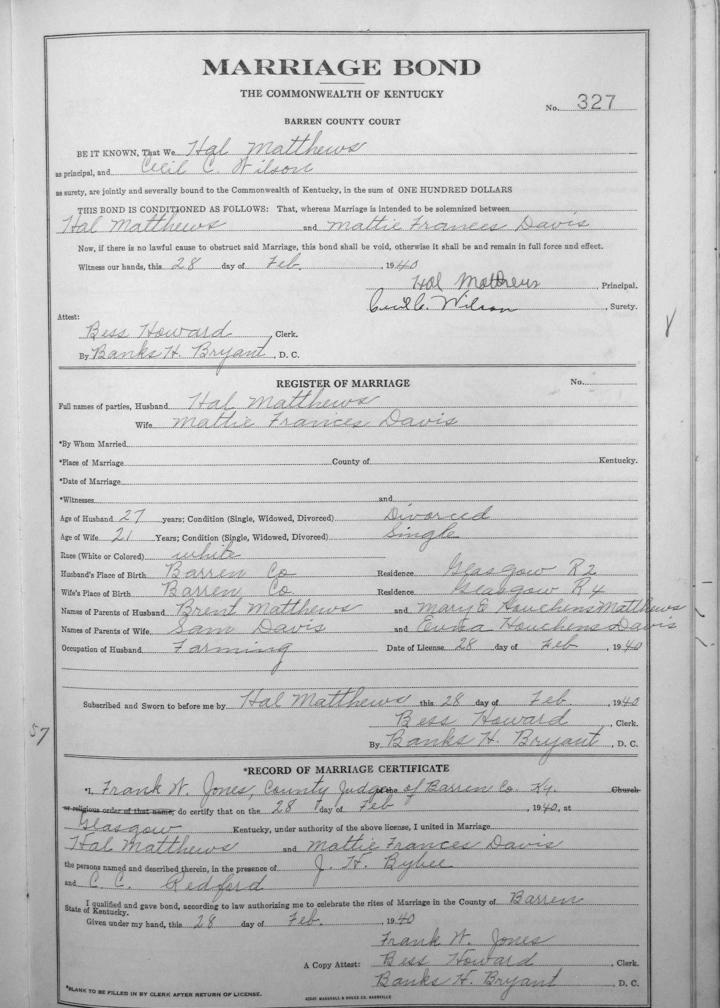 MARRIAGE BOND
THE COMMONWEALTH OF KENTUCKY
No. 327
BARREN COUNTY COURT
BE IT KNOWN, That We Hal Matthews
as principal, and Cecil C. Wilson
as surety, are jointly and severally bound to the Commonwealth of Kentucky, in the sum of ONE HUNDRED DOLLARS
THIS BOND IS CONDITIONED AS FOLLOWS: That, whereas Marriage is intended to be solemnized between
Hal Matthews and Mattie Frances Davis
Now, if there is no lawful cause to obstruct said Marriage, this bond shall be void, otherwise it shall be and remain in full force and effect.
Witness our hands, this 28 day of Feb. , 1940
Hal Matthews , Principal.
Cecil C. Wilson , Surety.
Attest:
Bess Howard , Clerk.
By Banks H. Bryant , D. C.
REGISTER OF MARRIAGE No.
Full names of parties, Husband Hal Matthews
Wife Mattie Frances Davis
*By Whom Married
*Place of Marriage County of Kentucky.
*Date of Marriage
*Witnesses and
Age of Husband 27 years; Condition (Single, Widowed, Divorced) Divorced
Age of Wife 21 Years; Condition (Single, Widowed, Divorced) Single
Race (White or Colored) white
Husband's Place of Birth Barren Co Residence Glasgow R2
Wife's Place of Birth Barren Co Residence Glasgow R4
Names of Parents of Husband Brent Matthews and Mary E Houchens Matthews
Names of Parents of Wife Sam Davis and Houchens Davis
Occupation of Husband Farming Date of License 28 day of Feb , 1940
Subscribed and Sworn to before me by Hal Matthews this 28 day of Feb. , 1940
Bess Howard , Clerk.
57
By Banks H. Bryant , D. C.
*RECORD OF MARRIAGE CERTIFICATE
*I, Frank W. Jones, County Judge of Barren Co. Ky. Church
or religious order of that name, do certify that on the 28 day of Feb , 1940, at
Glasgow Kentucky, under authority of the above license, I united in Marriage
Hal Matthews and Mattie Frances Davis
the persons named and described therein, in the presence of J. H. Bybee
and C. C. Redford
I qualified and gave bond, according to law authorizing me to celebrate the rites of Marriage in the County of Barren
State of Kentucky.
Given under my hand, this 28 day of Feb. , 1940
Frank W. Jones
A Copy Attest: Bess Howard , Clerk.
Banks H. Bryant , D. C.
*BLANK TO BE FILLED IN BY CLERK AFTER RETURN OF LICENSE.